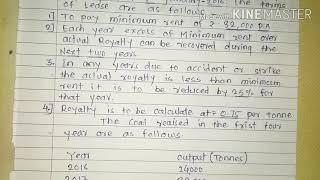 Made with
KINEMASTER
of Lease are as follows
1. To pay minimum rent of ₹ 32,000 p.a
2. Each year excess of Minimum rent over
actual Royalty can be recovered during the
Next two years
3. In any years due to accident or strike
the actual royalty is less than minimum
rent it is to be reduced by 25% for
that year.
4. Royalty is to be calculate at= 0.75 per tonne
The coal reaised in the frist four
year are as follows.
Year output (Tonnes)
2016 24000
2017